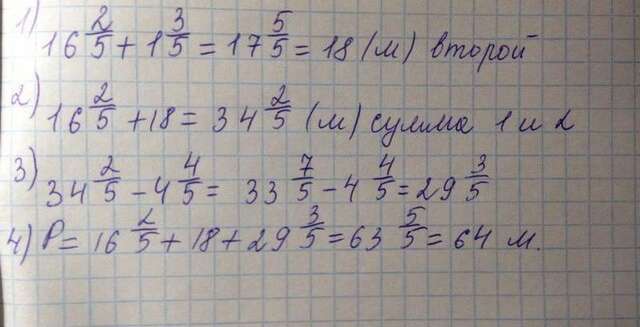 1) 16 2/5 + 1 3/5 = 17 5/5 = 18 (м) второй
2) 16 2/5 + 18 = 34 2/5 (м) сумма 1 и 2
3) 34 2/5 - 4 4/5 = 33 7/5 - 4 4/5 = 29 3/5
4) P = 16 2/5 + 18 + 29 3/5 = 63 5/5 = 64 м.